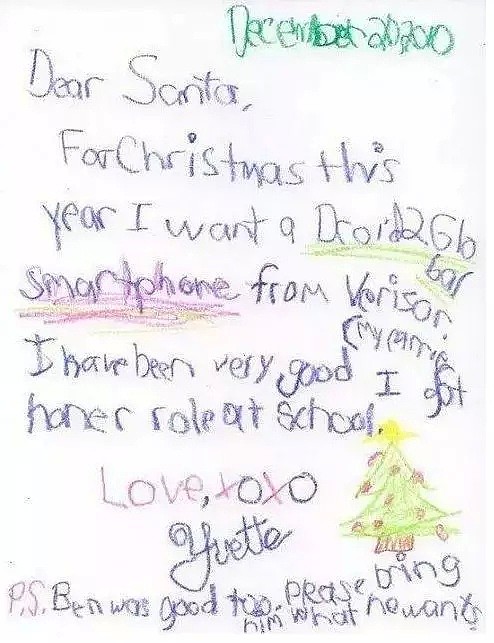 December 20, 2010
Dear Santa,
For Christmas this
year I want a Droid2Glo
bar
smartphone from Verison
(my carrie
I have been very good I got
honer role at School
Love, xoxo
Yvette
P.S. Ben was good too. please bring
him what he wants